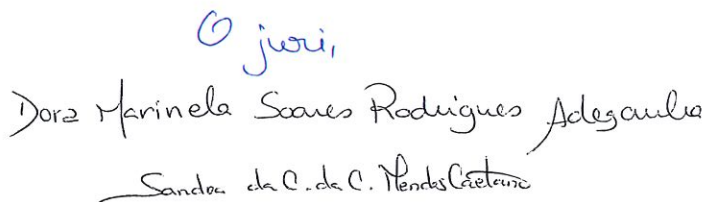 O juri,
Dora Marinela Soares Rodrigues Adeganha
Sandra da C. da C. Mendes Caetano